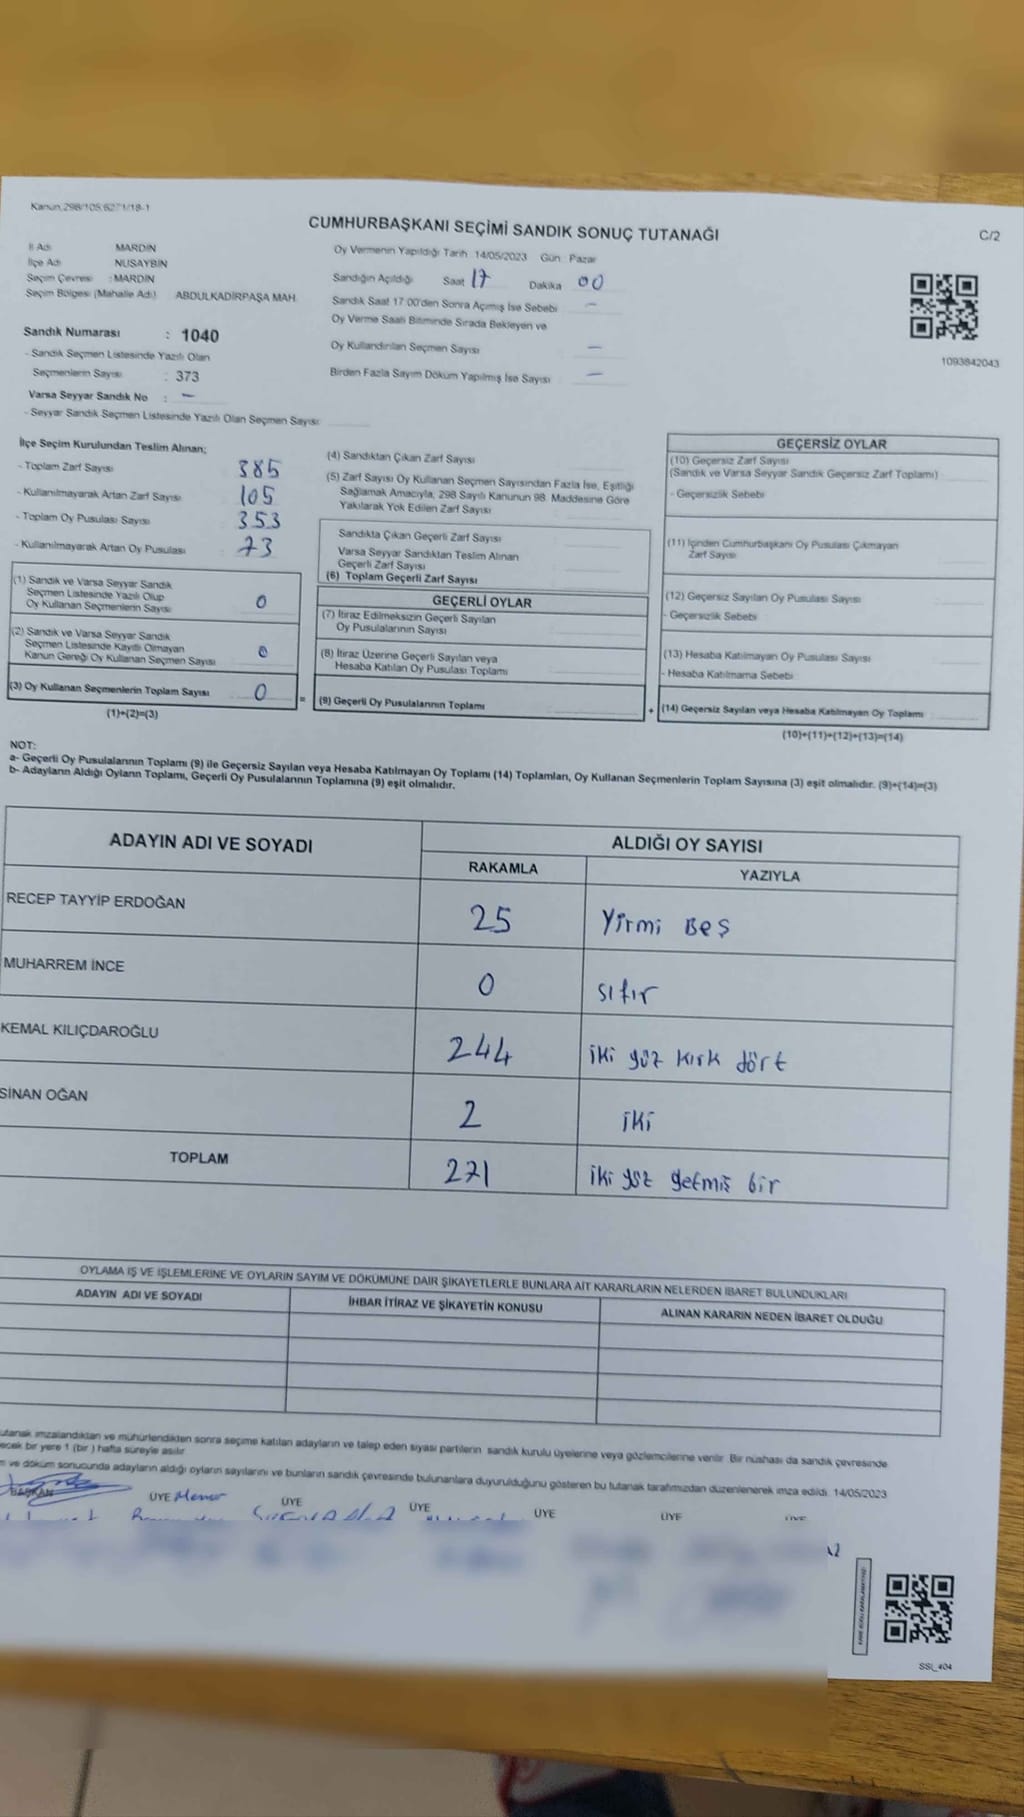 Kanun:298/105,6271/18-1
CUMHURBAŞKANI SEÇİMİ SANDIK SONUÇ TUTANAĞI
C/2
İl Adı MARDİN
İlçe Adı NUSAYBİN
Seçim Çevresi : MARDİN
Seçim Bölgesi (Mahalle Adı) ABDULKADİRPAŞA MAH.
Oy Vermenin Yapıldığı Tarih : 14/05/2023 Gün : Pazar
Sandığın Açıldığı Saat 17 Dakika 00
Sandık Saat 17:00'den Sonra Açımış İse Sebebi –
Oy Verme Saati Bitiminde Sırada Bekleyen ve
Oy Kullandırılan Seçmen Sayısı –
Birden Fazla Sayım Döküm Yapılmış İse Sayısı –
1093842043
Sandık Numarası : 1040
- Sandık Seçmen Listesinde Yazılı Olan
Seçmenlerin Sayısı : 373
Varsa Seyyar Sandık No : –
- Seyyar Sandık Seçmen Listesinde Yazılı Olan Seçmen Sayısı
İlçe Seçim Kurulundan Teslim Alınan;
- Toplam Zarf Sayısı 385
- Kullanılmayarak Artan Zarf Sayısı 105
- Toplam Oy Pusulası Sayısı 353
- Kullanılmayarak Artan Oy Pusulası 73
(1) Sandık ve Varsa Seyyar Sandık
Seçmen Listesinde Yazılı Olup
Oy Kullanan Seçmenlerin Sayısı 0
(2) Sandık ve Varsa Seyyar Sandık
Seçmen Listesinde Kayıtlı Olmayan
Kanun Gereği Oy Kullanan Seçmen Sayısı 0
(3) Oy Kullanan Seçmenlerin Toplam Sayısı 0
(1)+(2)=(3)
(4) Sandıktan Çıkan Zarf Sayısı
(5) Zarf Sayısı Oy Kullanan Seçmen Sayısından Fazla İse, Eşitliği
Sağlamak Amacıyla, 298 Sayılı Kanunun 98. Maddesine Göre
Yakılarak Yok Edilen Zarf Sayısı
Sandıkta Çıkan Geçerli Zarf Sayısı
Varsa Seyyar Sandıktan Teslim Alınan
Geçerli Zarf Sayısı
(6) Toplam Geçerli Zarf Sayısı
GEÇERLİ OYLAR
(7) İtiraz Edilmeksizin Geçerli Sayılan
Oy Pusulalarının Sayısı
(8) İtiraz Üzerine Geçerli Sayılan veya
Hesaba Katılan Oy Pusulası Toplamı
= (9) Geçerli Oy Pusulalarının Toplamı
GEÇERSİZ OYLAR
(10) Geçersiz Zarf Sayısı
(Sandık ve Varsa Seyyar Sandık Geçersiz Zarf Toplamı)
- Geçersizlik Sebebi
(11) İçinden Cumhurbaşkanı Oy Pusulası Çıkmayan
Zarf Sayısı
(12) Geçersiz Sayılan Oy Pusulası Sayısı
- Geçersizlik Sebebi
(13) Hesaba Katılmayan Oy Pusulası Sayısı
- Hesaba Katılmama Sebebi
+ (14) Geçersiz Sayılan veya Hesaba Katılmayan Oy Toplamı
(10)+(11)+(12)+(13)=(14)
NOT:
a- Geçerli Oy Pusulalarının Toplamı (9) ile Geçersiz Sayılan veya Hesaba Katılmayan Oy Toplamı (14) Toplamları, Oy Kullanan Seçmenlerin Toplam Sayısına (3) eşit olmalıdır. (9)+(14)=(3)
b- Adayların Aldığı Oyların Toplamı, Geçerli Oy Pusulalarının Toplamına (9) eşit olmalıdır.
ADAYIN ADI VE SOYADI ALDIĞI OY SAYISI
RAKAMLA YAZIYLA
RECEP TAYYİP ERDOĞAN 25 Yirmi Beş
MUHARREM İNCE 0 sıfır
KEMAL KILIÇDAROĞLU 244 iki yüz kırk dört
SİNAN OĞAN 2 iki
TOPLAM 271 iki yüz yetmiş bir
OYLAMA İŞ VE İŞLEMLERİNE VE OYLARIN SAYIM VE DÖKÜMÜNE DAİR ŞİKAYETLERLE BUNLARA AİT KARARLARIN NELERDEN İBARET BULUNDUKLARI
ADAYIN ADI VE SOYADI İHBAR İTİRAZ VE ŞİKAYETİN KONUSU ALINAN KARARIN NEDEN İBARET OLDUĞU
utanak imzalandıktan ve mühürlendikten sonra seçime katılan adayların ve talep eden siyasi partilerin sandık kurulu üyelerine veya gözlemcilerine verilir. Bir nüshası da sandık çevresinde
ecek bir yere 1 (bir ) hafta süreyle asılır.
ve döküm sonucunda adayların aldığı oyların sayılarını ve bunların sandık çevresinde bulunanlara duyurulduğunu gösteren bu tutanak tarafımızdan düzenlenerek imza edildi. 14/05/2023
BAŞKAN ÜYE ÜYE ÜYE ÜYE ÜYE ÜYE
SSI_404